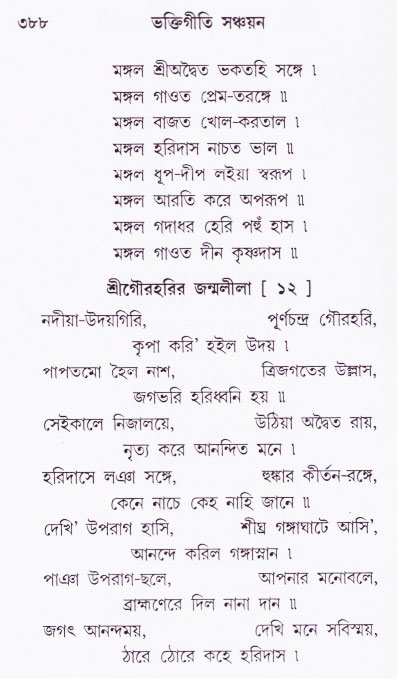 ৩৮৮ ভক্তিগীতি সঞ্চয়ন
মঙ্গল শ্রীঅদ্বৈত ভকতহি সঙ্গে ।
মঙ্গল গাওত প্রেম-তরঙ্গে ॥
মঙ্গল বাজত খোল-করতাল ।
মঙ্গল হরিদাস নাচত ভাল ॥
মঙ্গল ধূপ-দীপ লইয়া স্বরূপ ।
মঙ্গল আরতি করে অপরূপ ॥
মঙ্গল গদাধর হেরি পহুঁ হাস ।
মঙ্গল গাওত দীন কৃষ্ণদাস ॥
শ্রীগৌরহরির জন্মলীলা [ ১২ ]
নদীয়া-উদয়গিরি, পূর্ণচন্দ্র গৌরহরি,
কৃপা করি’ হইল উদয় ।
পাপতমো হৈল নাশ, ত্রিজগতের উল্লাস,
জগভরি হরিধ্বনি হয় ॥
সেইকালে নিজালয়ে, উঠিয়া অদ্বৈত রায়,
নৃত্য করে আনন্দিত মনে ।
হরিদাসে লঞা সঙ্গে, হুঙ্কার কীর্তন-রঙ্গে,
কেনে নাচে কেহ নাহি জানে ॥
দেখি’ উপরাগ হাসি, শীঘ্র গঙ্গাঘাটে আসি’,
আনন্দে করিল গঙ্গাস্নান ।
পাঞা উপরাগ-ছলে, আপনার মনোবলে,
ব্রাহ্মণেরে দিল নানা দান ॥
জগৎ আনন্দময়, দেখি মনে সবিস্ময়,
ঠারে ঠোরে কহে হরিদাস ।